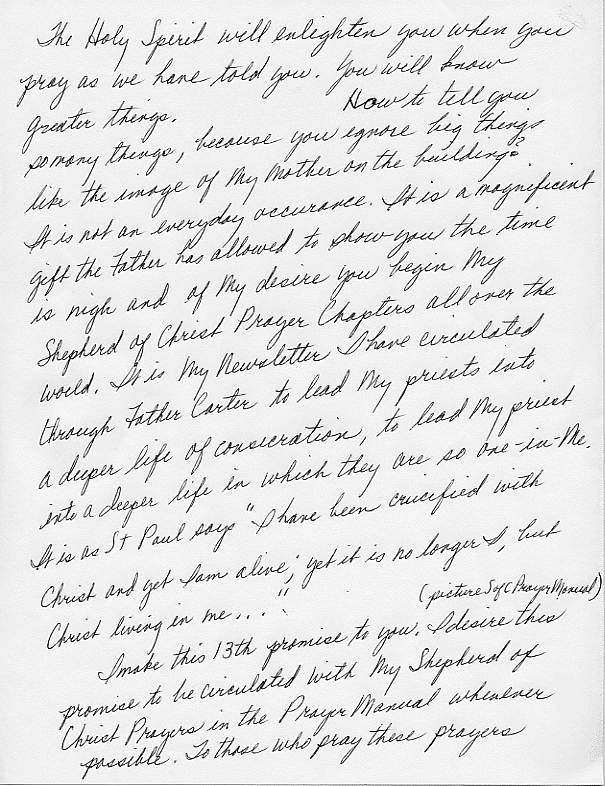 The Holy Spirit will enlighten you when you
pray as we have told you. You will know
greater things. How to tell you
so many things, because you ignore big things
like the image of My Mother on the building?
It is not an everyday occurance. It is a magnificent
gift the Father has allowed to show you the time
is nigh and of My desire you begin My
Shepherd of Christ Prayer Chapters all over the
world. It is My Newsletter I have circulated
through Father Carter to lead My priests into
a deeper life of consecration, to lead My priest
into a deeper life in which they are so one-in-Me.
It is as St Paul says "I have been crucified with
Christ and yet I am alive; yet it is no longer I, but
Christ living in me..."
(picture S of C Prayer Manual)
I make this 13th promise to you. I desire this
promise to be circulated with My Shepherd of
Christ Prayers in the Prayer Manual whenever
possible. To those who pray these prayers